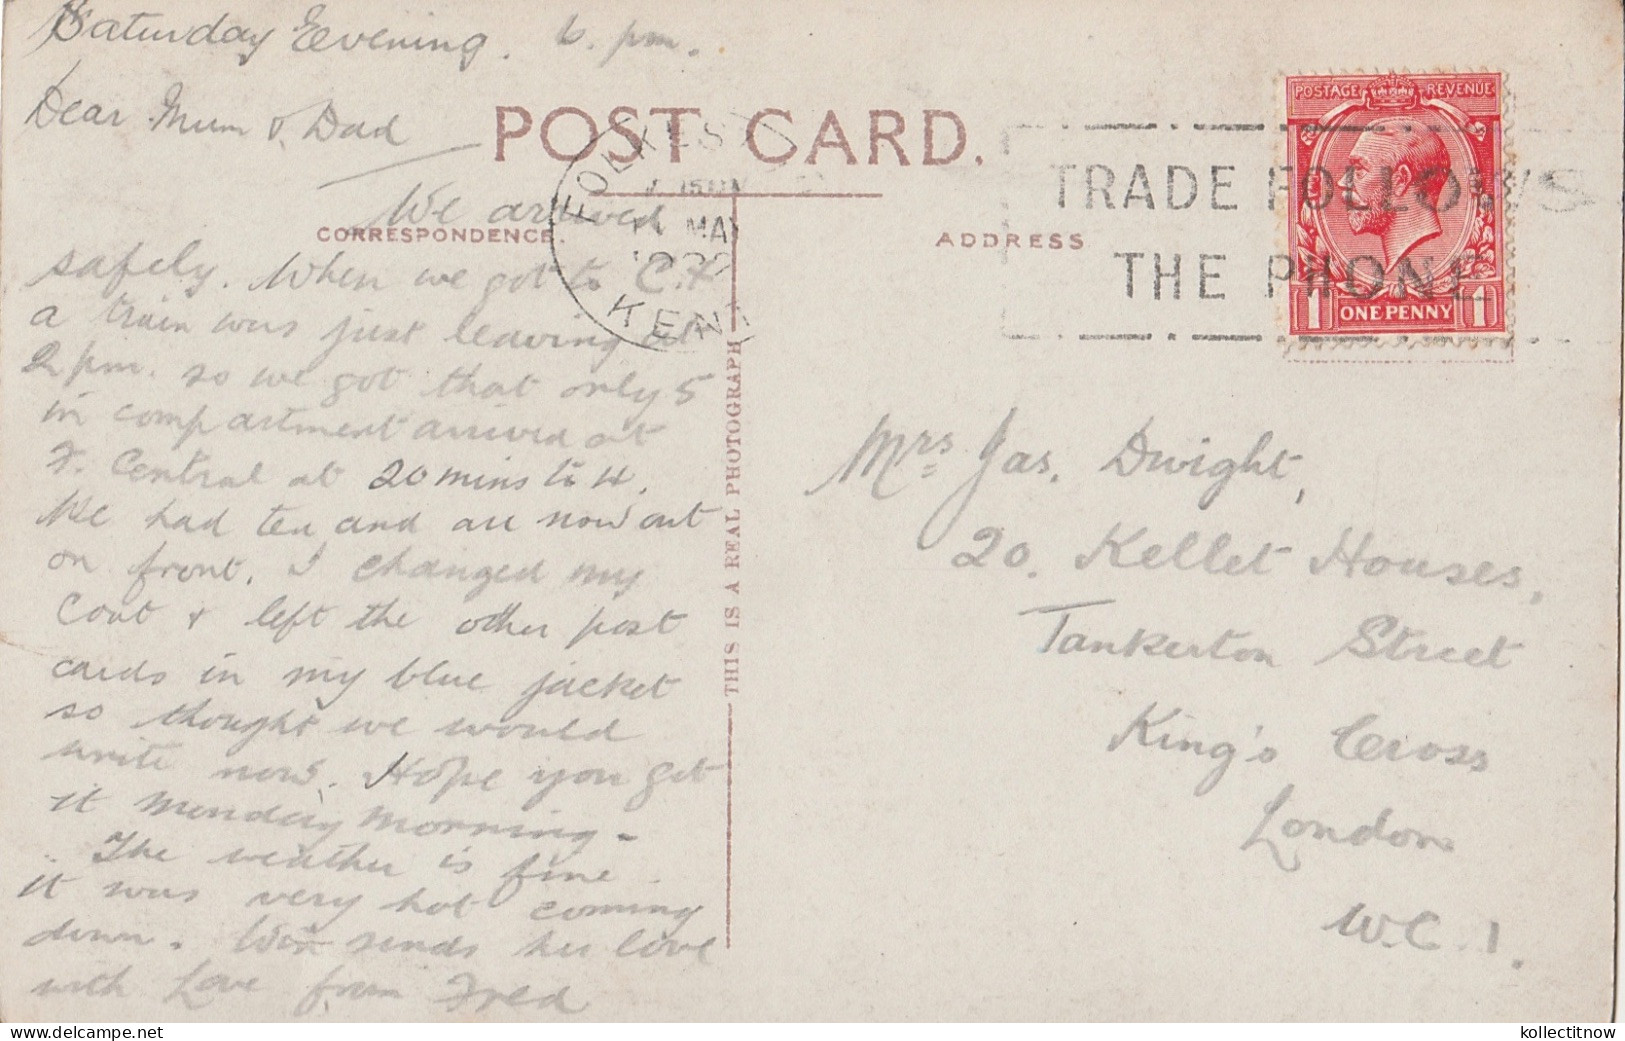 Saturday Evening. 6. pm.
Dear Mum & Dad
POST CARD.
We arrived
CORRESPONDENCE.
safely. When we got to C.X
a train was just leaving at
2 pm. so we got that only 5
in compartment arrived at
F. Central at 20 mins to 4.
We had tea and are now out
on front. I changed my
Coat & left the other post
cards in my blue jacket
so thought we would
write now. Hope you get
it Monday morning -
The weather is fine
it was very hot coming
down. Win sends her love
with Love from Fred
FOLKEST
MAY
KENT
THIS IS A REAL PHOTOGRAPH
ADDRESS
TRADE FOLLOWS
THE PHONE
POSTAGE REVENUE
1 ONE PENNY 1
Mrs Jas. Dwight,
20. Kellet Houses,
Tankerton Street
King's Cross
London
W.C.1.
kollectitnow